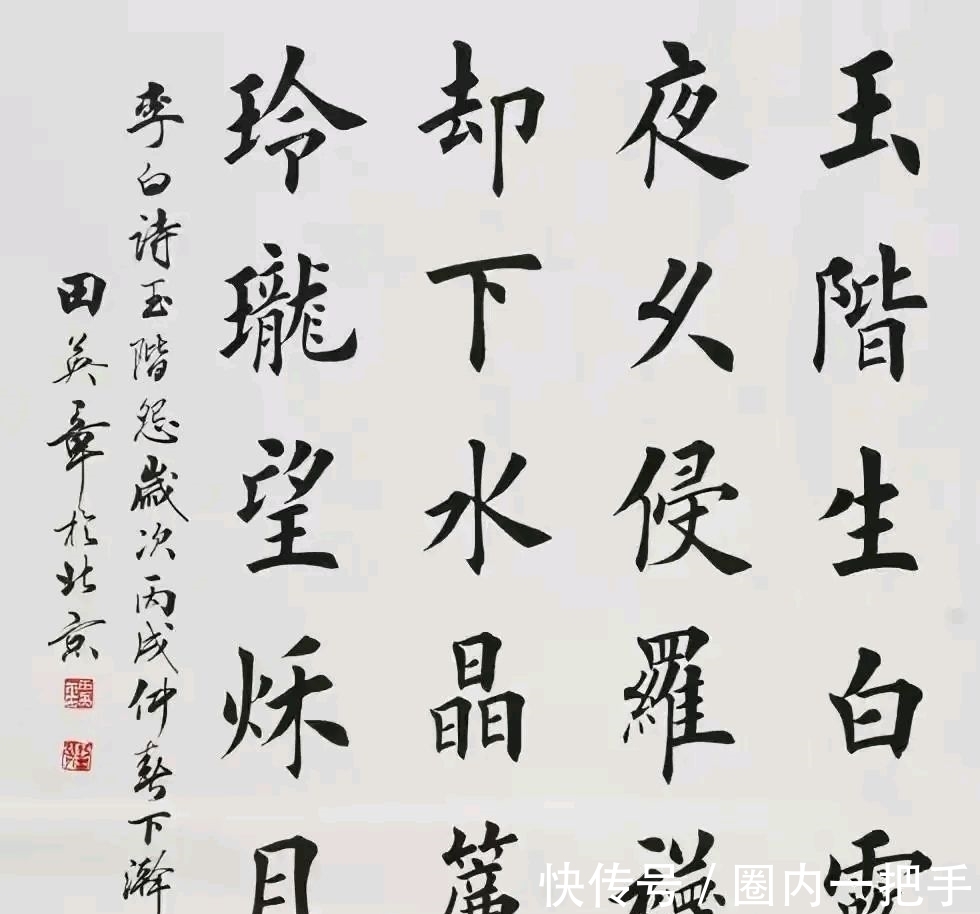 玉階生白露
夜久侵羅襪
却下水晶簾
玲瓏望秌月
李白詩玉階怨歲次丙戌仲春下澣
田英章於北京
快传号 / 圈内一把手